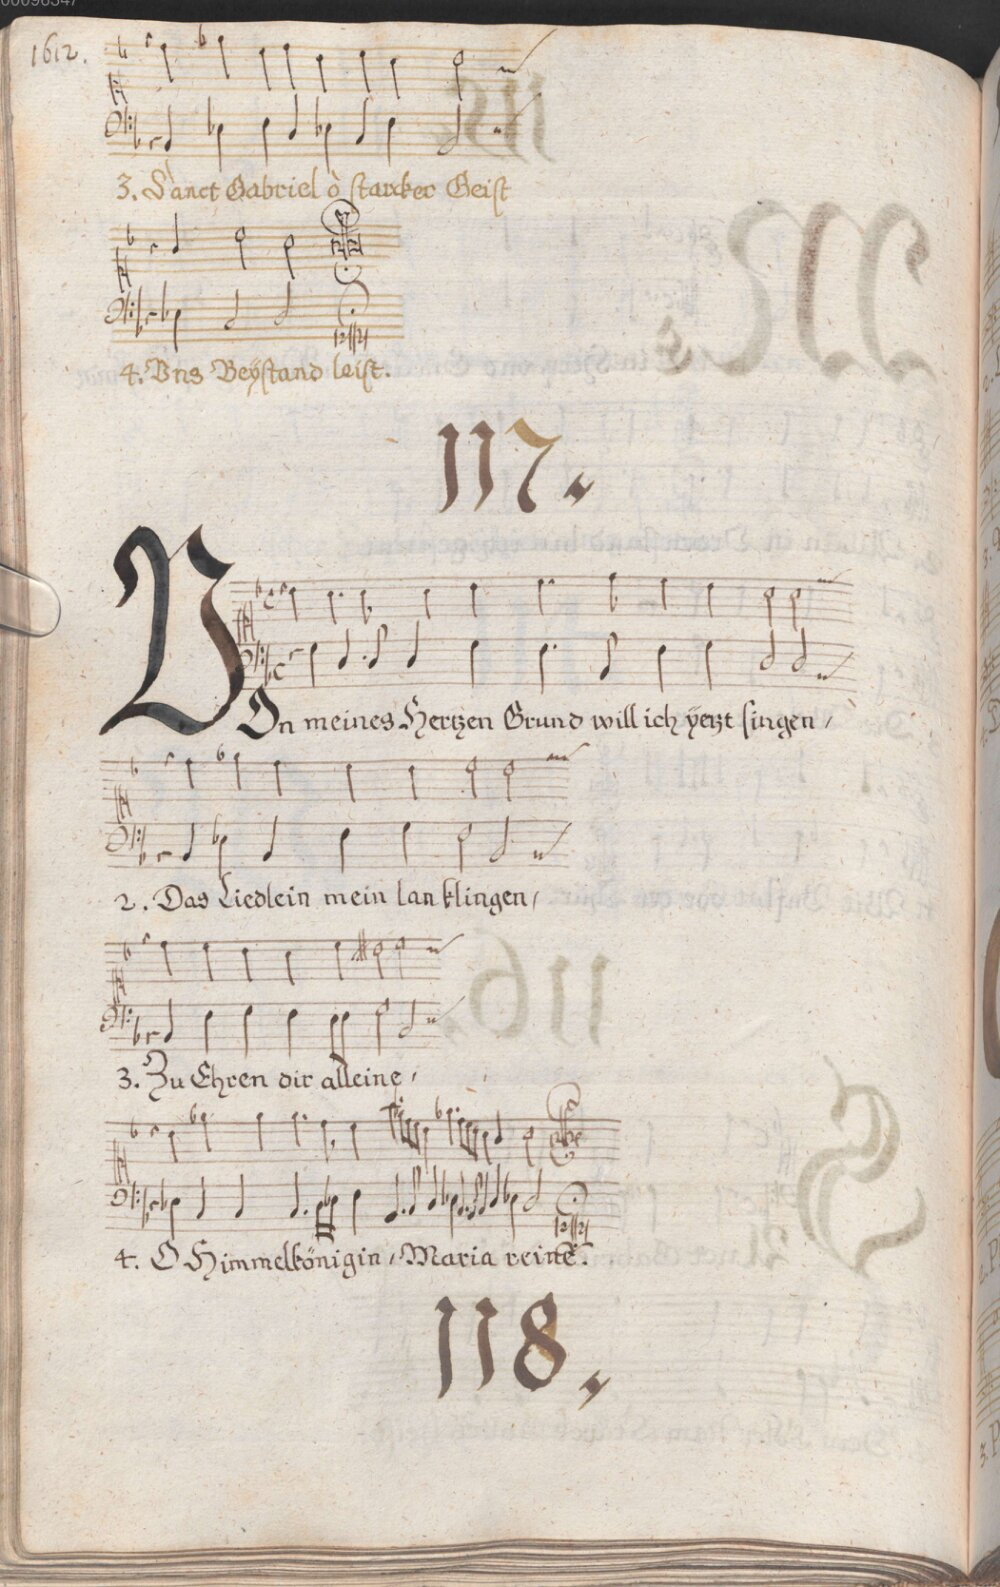 00096347
1612.
3. Sanct Gabriel ò starcker Geist
4. Vns Beÿstand leist.
117.
VOn meines Hertzen Grund will ich yetzt singen,
2. Das Liedlein mein lan klingen,
3. Zu Ehren dir alleine,
4. O Himmelkönigin, Maria reine.
118.